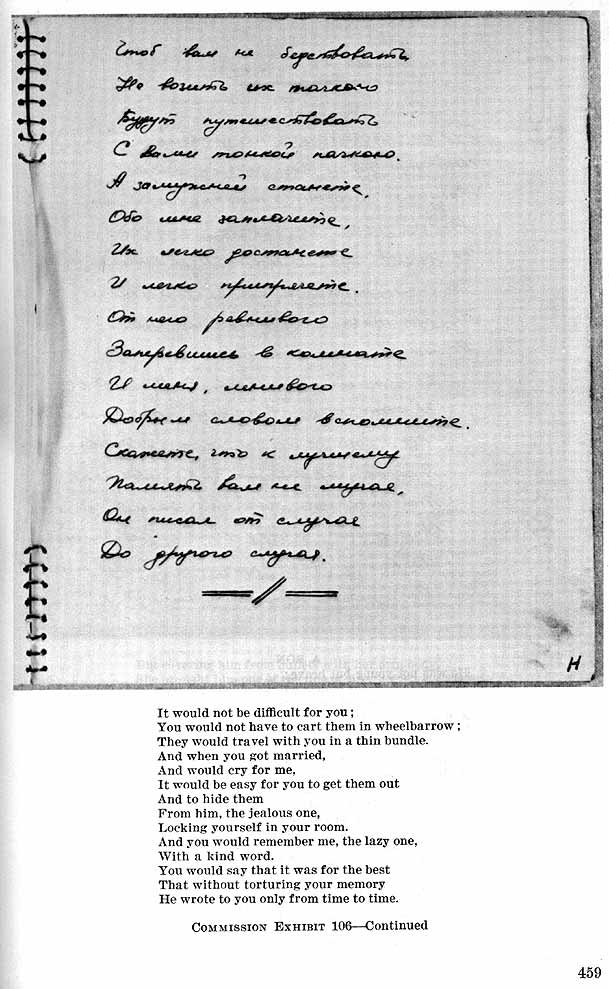 Чтоб вам не бедствовать
Не возить их тачкою
Будут путешествовать
С вами тонкой пачкою.
А замужней станете,
Обо мне заплачите,
Их легко достанете
И легко припрячете.
От него ревнивого
Заперевшись в комнате
И меня, ленивого
Добрым словом вспомните.
Скажете, что к лучшему
Память вам не мучая,
Он писал от случая
До другого случая.
H
It would not be difficult for you;
You would not have to cart them in wheelbarrow;
They would travel with you in a thin bundle.
And when you got married,
And would cry for me,
It would be easy for you to get them out
And to hide them
From him, the jealous one,
Locking yourself in your room.
And you would remember me, the lazy one,
With a kind word.
You would say that it was for the best
That without torturing your memory
He wrote to you only from time to time.
COMMISSION EXHIBIT 106—Continued
459